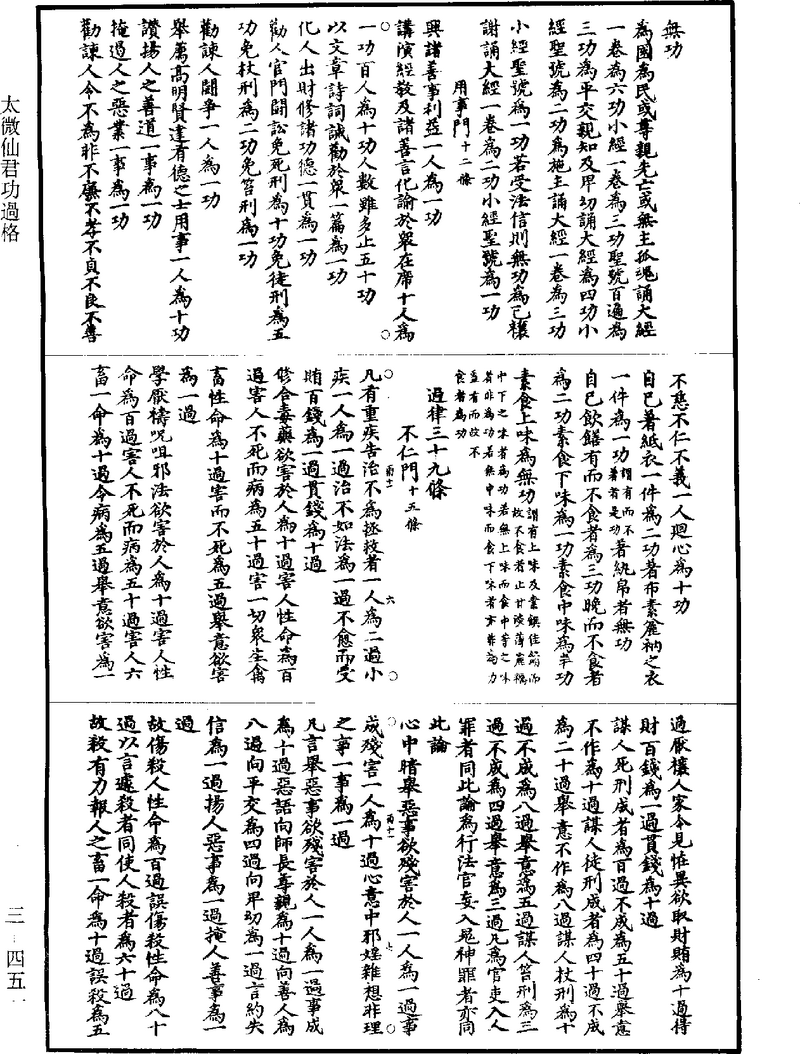 無功
為國為民或尊親先亡或無主孤魂誦大經
一卷為六功小經一卷為三功聖號百遍為
三功為平交親知及卑幼誦大經為四功小
經聖號為二功為施主誦大經一卷為三功
小經聖號為一功若受法信則無功為己禳
謝誦大經一卷為二功小經聖號為一功
用事門十二條
興諸善事利益一人為一功
講演經教及諸善言化諭於眾在席十人為
一功百人為十功人數雖多止五十功
以文章詩詞誡勸於眾一篇為一功
化人出財修諸功德一貫為一功
勸人官門鬪訟免死刑為十功免徒刑為五
功免杖刑為二功免笞刑為一功
勸諫人鬪爭一人為一功
舉薦高明賢達有德之士用事一人為十功
讚揚人之善道一事為一功
掩過人之惡業一事為一功
勸諫人令不為非不廉不孝不貞不良不善
不慈不仁不義一人迴心為十功
自己著紙衣一件為二功著布素麤衲之衣
一件為一功謂有而不著者是功著紈帛者無功
自己飲饍有而不食者為三功晚而不食者
為二功素食下味為一功素食中味為半功
素食上味為無功謂有上味及葷饌佳餚而
故不食者止甘淡薄麤糲
中下之味者為功若無上味而食中等之味
者非為功若無中味而食下味者亦非為功
蓋有而故不
食者為功
過律三十九條
不仁門十五條
凡有重疾告治不為拯救者一人為二過小
疾一人為一過治不如法為一過不愈而受
賄百錢為一過貫錢為十過
修合毒藥欲害於人為十過害人性命為百
過害人不死而病為五十過害一切眾生禽
畜性命為十過害而不死為五過舉意欲害
為一過
學厭禱呪咀邪法欲害於人為十過害人性
命為百過害人不死而病為五十過害人六
畜一命為十過令病為五過舉意欲害為一
過厭禳人家令見怪異欲取財賄為十過得
財百錢為一過貫錢為十過
謀人死刑成者為百過不成為五十過舉意
不作為十過謀人徒刑成者為四十過不成
為二十過舉意不作為八過謀人杖刑為十
過不成為八過舉意為五過謀人笞刑為三
過不成為四過舉意為三過凡為官吏入人
罪者同此論為行法官妄入鬼神罪者亦同
此論
心中暗舉惡事欲殘害於人一人為一過事
成殘害一人為十過心意中邪婬雜想非理
之事一事為一過
凡言舉惡事欲殘害於人一人為一過事成
為十過惡語向師長尊親為十過向善人為
八過向平交為四過向卑幼為一過言約失
信為一過揚人惡事為一過掩人善事為一
過
故傷殺人性命為百過誤傷殺性命為八十
過以言遣殺者同使人殺者為六十過
故殺有力報人之畜一命為十過誤殺為五
太微仙君功過格
三－四五一